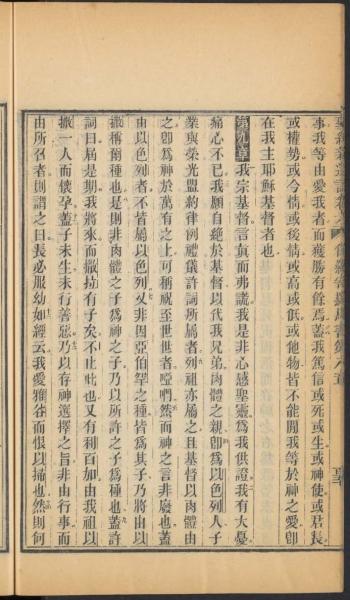 事我等由愛我者而獲勝有餘焉蓋我篤信或死或生或神使或君長
或權勢或今情或後情或高或低或他物皆不能間我等於神之愛卽
在我主耶穌基督者也
第九章我宗基督言真而弗謊我是非心感聖靈爲我供證我有大憂
痛心不已我願自絕於基督以代我兄弟肉體之親卽爲以色列人子
業與榮光盟約律例禮儀許詞所屬者列祖亦屬之且基督以肉體由
之卽爲神於萬有之上可稱祝至世世者啞們然而神之言非廢也蓋
由以色列者不皆屬以色列又非因亞伯罕之種皆爲其子乃將由以
撒稱爾種也是則非肉體之子爲神之子乃以所許之子爲種也蓋許
詞曰屆是期我將來而撒拉有子矣不止此也又有利百加由我祖以
撒一人而懷孕蓋子未生未行善惡乃以存神選擇之旨非由行事而
由所召者則謂之曰長必服幼如經云我愛雅各而恨以掃也然則何